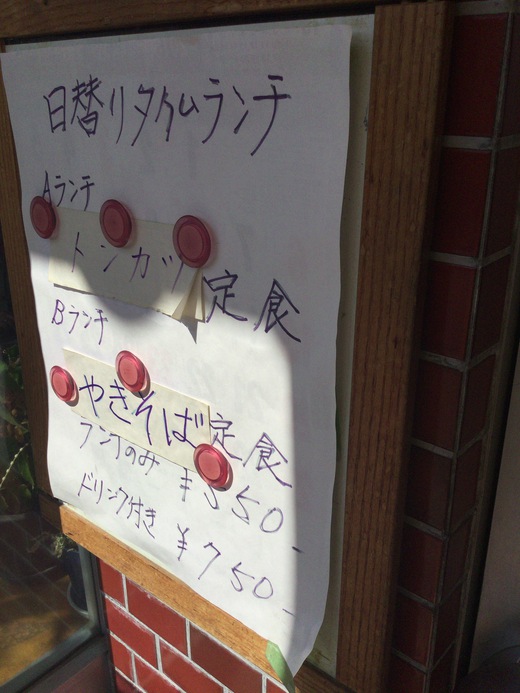 日替りタイムランチ
Aランチ
トンカツ定食
Bランチ
やきそば定食
ランチのみ ¥550-
ドリンク付き ¥750-